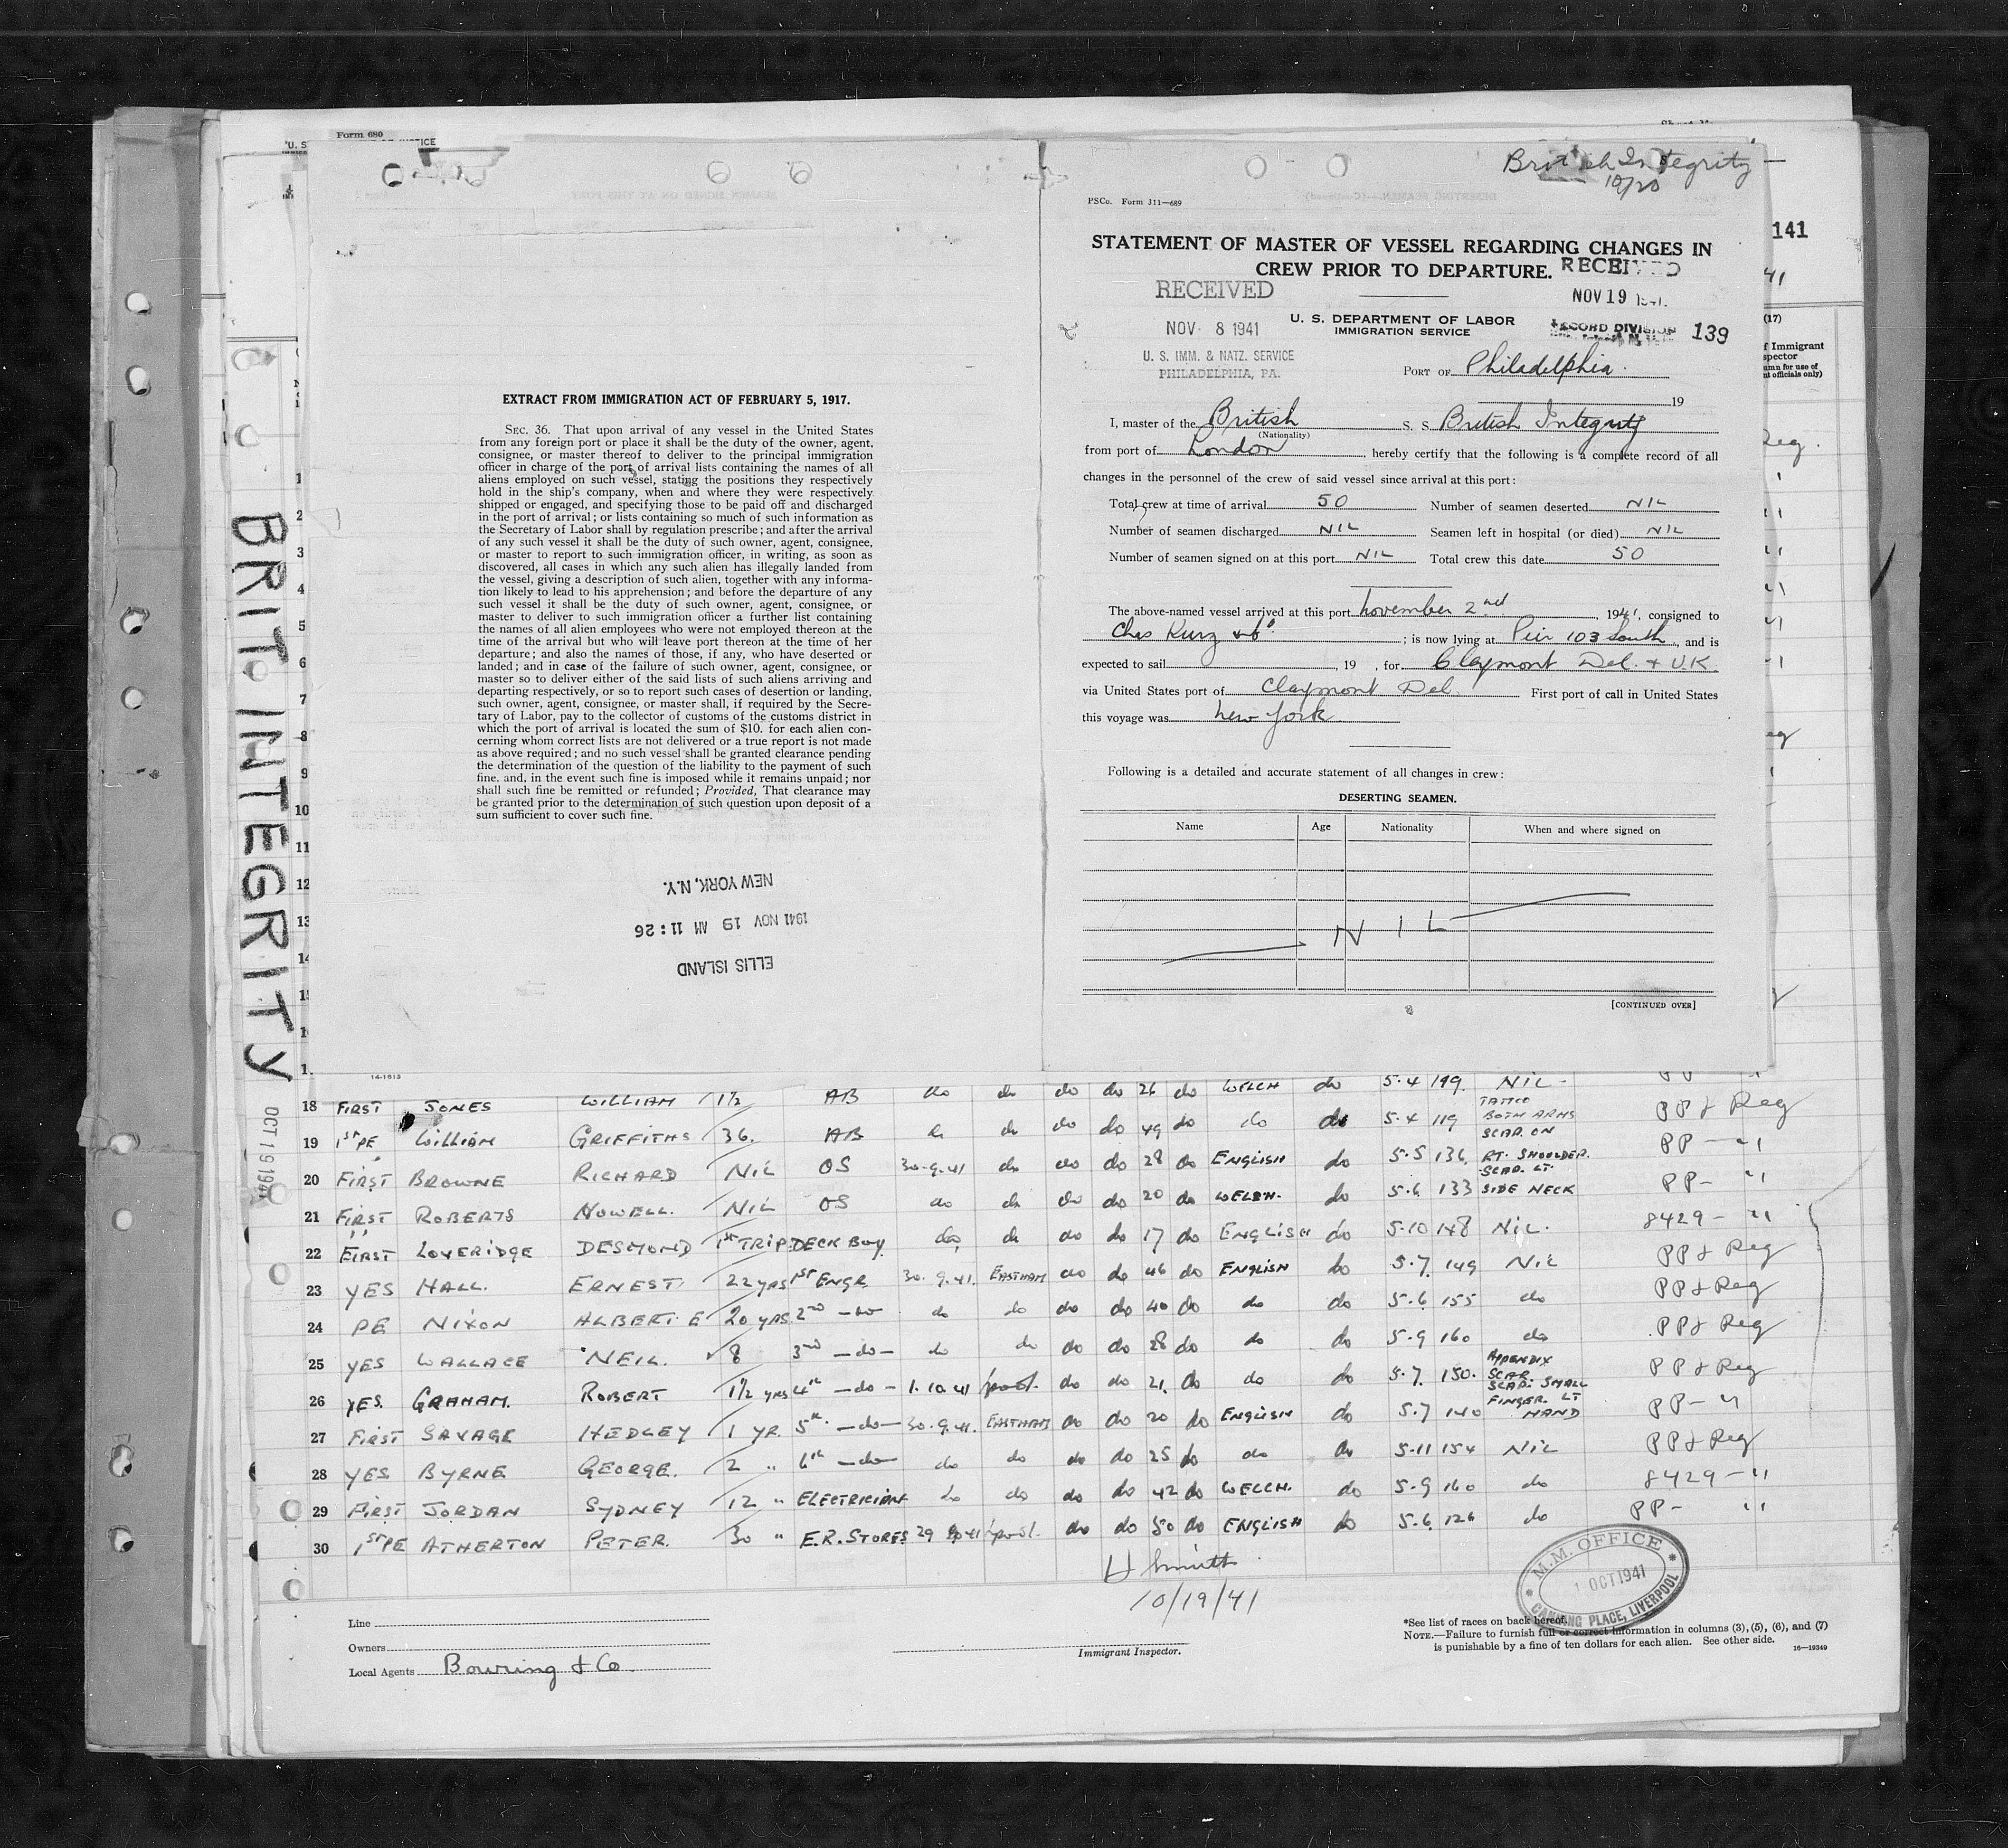 Form 689
British Integrity
10/20
PSCo. Form J11—689
STATEMENT OF MASTER OF VESSEL REGARDING CHANGES IN
CREW PRIOR TO DEPARTURE.
RECEIVED
NOV 19
RECORD DIVISION
139
RECEIVED
NOV 8 1941
U. S. IMM. & NATZ. SERVICE
PHILADELPHIA, PA.
U. S. DEPARTMENT OF LABOR
IMMIGRATION SERVICE
PORT OF Philadelphia.
19
I, master of the British S. S. British Integrity
(Nationality)
from port of London, hereby certify that the following is a complete record of all
changes in the personnel of the crew of said vessel since arrival at this port:
Total crew at time of arrival 50 Number of seamen deserted NIL
Number of seamen discharged NIL Seamen left in hospital (or died) NIL
Number of seamen signed on at this port NIL Total crew this date 50
The above-named vessel arrived at this port November 2nd, 1941, consigned to
Chas Kurz & Co; is now lying at Pier 103 South, and is
expected to sail , 19 , for Claymont Del. + U.K.
via United States port of Claymont Del. First port of call in United States
this voyage was New York
Following is a detailed and accurate statement of all changes in crew:
DESERTING SEAMEN.
Name Age Nationality When and where signed on
NIL
[CONTINUED OVER]
EXTRACT FROM IMMIGRATION ACT OF FEBRUARY 5, 1917.
SEC. 36. That upon arrival of any vessel in the United States
from any foreign port or place it shall be the duty of the owner, agent,
consignee, or master thereof to deliver to the principal immigration
officer in charge of the port of arrival lists containing the names of all
aliens employed on such vessel, stating the positions they respectively
hold in the ship's company, when and where they were respectively
shipped or engaged, and specifying those to be paid off and discharged
in the port of arrival; or lists containing so much of such information as
the Secretary of Labor shall by regulation prescribe; and after the arrival
of any such vessel it shall be the duty of such owner, agent, consignee,
or master to report to such immigration officer, in writing, as soon as
discovered, all cases in which any such alien has illegally landed from
the vessel, giving a description of such alien, together with any informa-
tion likely to lead to his apprehension; and before the departure of any
such vessel it shall be the duty of such owner, agent, consignee, or
master to deliver to such immigration officer a further list containing
the names of all alien employees who were not employed thereon at the
time of the arrival but who will leave port thereon at the time of her
departure; and also the names of those, if any, who have deserted or
landed; and in case of the failure of such owner, agent, consignee, or
master so to deliver either of the said lists of such aliens arriving and
departing respectively, or so to report such cases of desertion or landing,
such owner, agent, consignee, or master shall, if required by the Secre-
tary of Labor, pay to the collector of customs of the customs district in
which the port of arrival is located the sum of $10. for each alien con-
cerning whom correct lists are not delivered or a true report is not made
as above required; and no such vessel shall be granted clearance pending
the determination of the question of the liability to the payment of such
fine. and, in the event such fine is imposed while it remains unpaid; nor
shall such fine be remitted or refunded; Provided, That clearance may
be granted prior to the determination of such question upon deposit of a
sum sufficient to cover such fine.
ELLIS ISLAND
1941 NOV 19 AM 11:26
NEW YORK, N.Y.
14-1613
BRIT INTEGRITY
OCT 19 1941
141
41
(17)
18 FIRST JONES WILLIAM 1½ AB do do do do 26 do WELCH do 5·4 199 NIL -
19 1st PE WILLIAM GRIFFITHS 36. AB do do do do 49 do do do 5·4 119 TATTOO BOTH ARMS PP & Reg
20 FIRST BROWNE RICHARD NIL OS 30·9·41 do do do 28 do ENGLISH do 5·5 136 SCAR ON RT. SHOULDER. PP — "
21 FIRST ROBERTS HOWELL. NIL OS do do do do 20 do WELSH. do 5·6 133 SCAR. LT. SIDE NECK PP- "
22 FIRST LOVERIDGE DESMOND 1st TRIP DECK BOY do do do do 17 do ENGLISH do 5·10 148 NIL. 8429 - "
23 YES HALL. ERNEST 22 YRS 1st ENGR. 30.9.41. EASTHAM do do 46 do ENGLISH do 5·7 149 NIL PP & Reg
24 PE NIXON ALBERT E 20 YRS 2nd —do do do do do 40 do do do 5·6 155 do PP & Reg
25 YES WALLACE NEIL. 8 3rd —do— do do do do 28 do do do 5·9 160 do PP & Reg
26 YES. GRAHAM. ROBERT 1½ YRS 4th —do— 1.10.41 L'pool. do do 21. do do do 5·7 150. APPENDIX SCAR. PP & Reg
27 FIRST SAVAGE HEDLEY 1 YR. 5th —do— 30.9.41. EASTHAM do do 20 do ENGLISH do 5·7 140 SCAR. SMALL FINGER. LT HAND PP- "
28 YES BYRNE GEORGE. 2 " 6th —do— do do do do 25 do do do 5·11 154 NIL PP & Reg
29 FIRST JORDAN SYDNEY 12 " ELECTRICIAN do do do do 42 do WELCH. do 5·9 160 do 8429 - "
30 1st PE ATHERTON PETER. 30 " E.R. STORES 29 9 41 L'pool. do do 50 do ENGLISH do 5·6 126 do PP- "
H Smith
10/19/41
Immigrant Inspector.
M.M. OFFICE
1 OCT 1941
CANNING PLACE, LIVERPOOL
Line
Owners
Local Agents Bowring & Co.
*See list of races on back hereof.
NOTE.—Failure to furnish full or correct information in columns (3), (5), (6), and (7)
is punishable by a fine of ten dollars for each alien. See other side. 16—19349